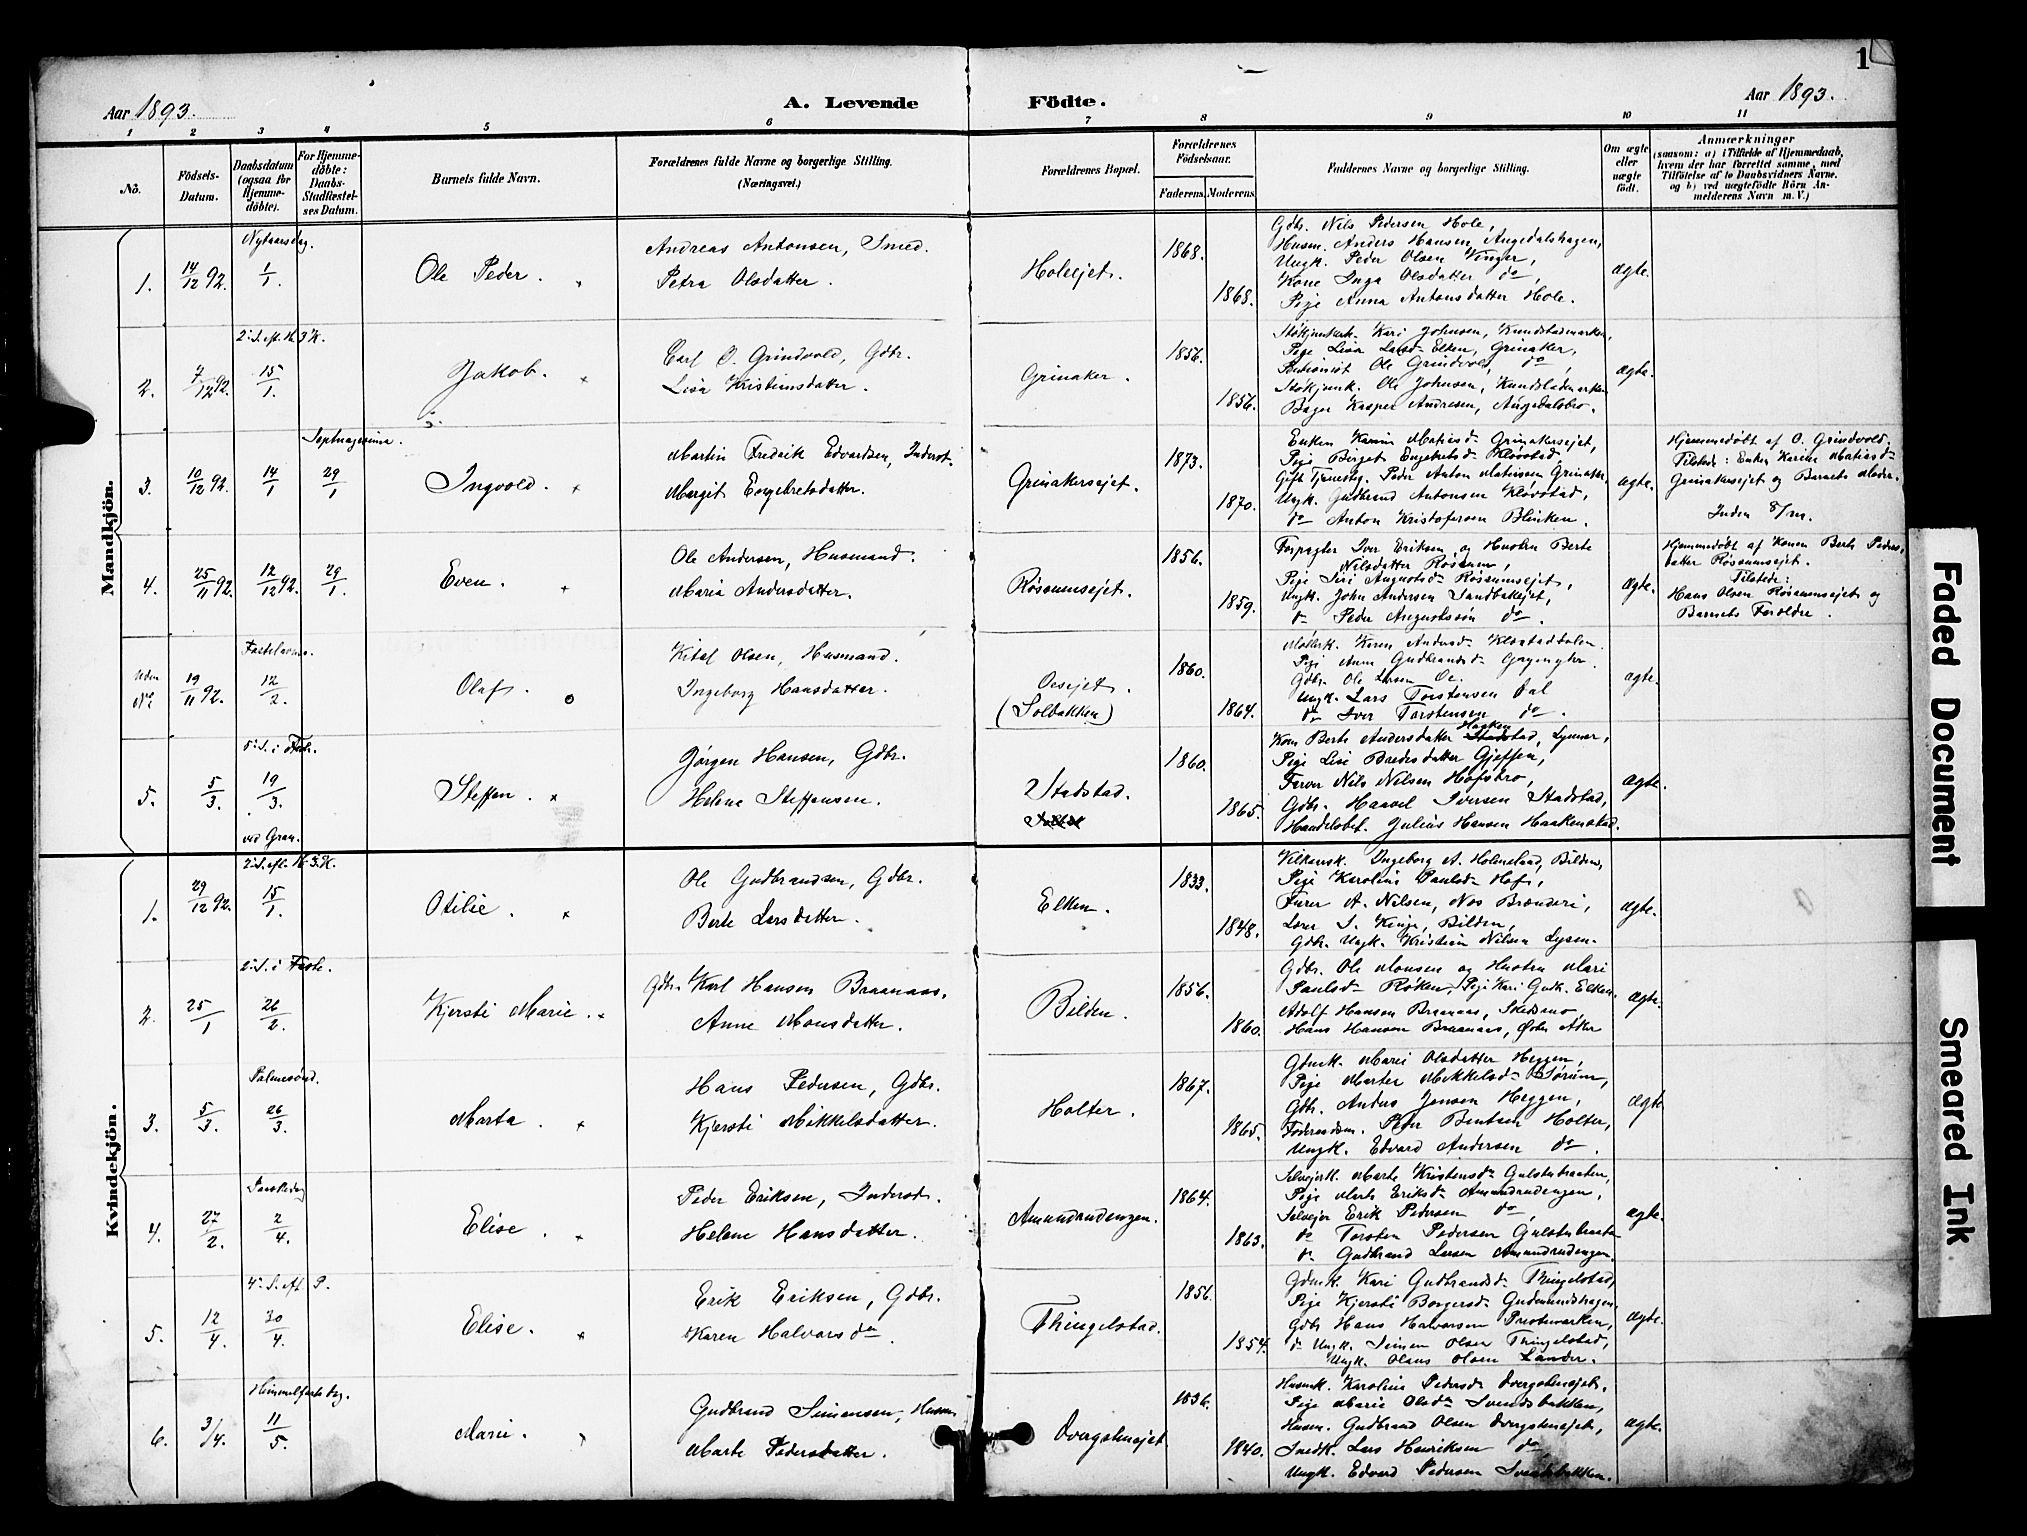 1
Aar 1893.
A. Levende Födte.
Aar 1893.
1 2 3 4 5 6 7 8 9 10 11
No.
Födsels-Datum.
Daabsdatum (ogsaa for Hjemme-döbte).
For Hjemme-döbte: Daabs-Stadfæstel-ses Datum.
Barnets fulde Navn.
Forældrenes fulde Navne og borgerlige Stilling.
(Næringsvei.)
Forældrenes Bopæl.
Forældrenes Födselsaar.
Faderens. Moderens.
Faddernes Navne og borgerlige Stilling.
Om ægte eller uægte födt.
Anmærkninger
(saasom: a) i Tilfælde af Hjemmedaab,
hvem der har forrettet samme, med
Tilföielse af to Daabsvidners Navne.
og b) ved uægtefödte Börn An-
melderens Navn m. V.)
Mandkjön.
Nytaarsdag.
1. 14/12 92. 1/1. Ole Peder.
Andreas Antonsen, Smed.
Petra Olsdatter.
Holeejet.
1868.
1868.
Gdbr. Nils Pedersen Hole,
Husm. Anders Hansen, Augedalshagen,
Ungk. Peder Olsen Vinger,
Kone Inga Olsdatter do,
Pige Anna Antonsdatter Hole.
ægte.
2. S. eft. H. 3 K.
2. 7/12 92. 15/1. Jakob.
Carl O. Grindvold, Gdbr.
Lisa Kristiansdatter.
Grinaker.
1856.
1856.
Kari Johnsen,
Pige Lisa Larsd. Elken, Grinaker,
Ole Grindvold, do,
Ole Johnsen,
Bager Kasper Andresen, Augedalsbro.
ægte.
Septuagesima.
3. 10/12 92. 14/1 29/1 Ingvold.
Martin Fredrik Edvardsen, Inderst.
Margit Engebretsdatter.
Grinakersejet.
1873.
1870.
Enken Karine Matiasd. Grinakersejet,
Pige Birget Engebretsd. Kløvstad,
Gift Tjenestg. Peder Anton Matiasen Grinaker,
Ungk. Gudbrand Antonsen Kløvstad,
do Anton Kristofersen Blinken.
ægte.
Hjemmedøbt af O. Grindvold.
Tilstede: Enken Karine Matiasd.
Grinakersejet og Barnets Moder.
Inden 8/m.
4. 25/11 92. 12/12 92. 29/1. Even.
Ole Andersen, Husmand.
Maria Andersdatter.
Røsumsejet.
1856.
1859.
Forpagter Iver Eriksen og Hustru Berte
Nilsdatter Røsum,
Pige Siri Augustsd. Røsumsejet,
Ungk. John Andersen Sandbakejet,
do Peder Augustssøn do.
ægte.
Hjemmedøbt af Konen Berte Peders-
datter Røsumsejet.
Tilstede:
Hans Olsen Røsumsejet og
Barnets Forældre.
Fastelavns.
Uden No 19/11 92. 12/2. Olaf.
Kitel Olsen, Husmand.
Ingeborg Hansdatter.
Oeejet.
(Solbakken)
1860.
1864.
Karen Andersd.
Pige Anne Gudbrandsd.
Gdbr. Ole Larsen Oe.
Ungk. Lars Torstensen Dal
do Iver Torstensen do.
ægte.
5. S. i Faste.
5. 5/3. 19/3. Steffen.
ved Gran.
Jørgen Hansen, Gdbr.
Helene Steffensen.
Stadstad.
1860.
1865.
Kone Berte Andersdatter Haakenstad, Lynner,
Pige Lise Bredesdatter Gjeffen,
Farver Nils Nilsen Hofsbro,
Gdbr. Haavel Iversen Stadstad,
Handelsbet. Julius Hansen Haakenstad.
ægte.
Kvindekjön.
2. S. eft. H. 3. K.
1. 29/12 92. 15/1. Otilie.
Ole Gudbrandsen, Gdbr.
Berte Larsdatter.
Elken.
1833.
1848.
Ingeborg A. Holmestad, Bilden,
Pige Karoline Paulsd. Hof,
Furer A. Nilsen, Næs Brænderi,
Lærer S. Kinge, Bilden,
Gdbr. Ungk. Kristian Nilsen Lysen.
ægte.
2. S. i Faste.
2. 25/1 26/2. Kjersti Marie.
Gdbr. Karl Hansen Braanaas.
Anne Monsdatter.
Bilden.
1856.
1860.
Gdbr. Ole Monsen og Hustru Mari
Paulsd. Røken, Pige Kari Gudb. Elken,
Adolf Hansen Braanaas, Skedsmo,
Hans Hansen Braanaas, Østre Aker
ægte.
Palmesønd.
3. 5/3. 26/3. Marta.
Hans Pedersen, Gdbr.
Kjersti Mikkelsdatter.
Holter.
1867.
1865.
Gdmk. Mari Olsdatter Heggen,
Pige Marte Mikkelsd. Sørum,
Gdbr. Anders Jensen Heggen,
Føderaadsm. Peder Bentsen Holter,
Ungk. Edvard Andersen do.
ægte
Paaskedag
4. 27/2. 2/4. Elise.
Peder Eriksen, Inderst.
Helene Hansdatter.
Amundrudengen.
1864.
1863.
Selvejerk. Marte Kristensd. Gulsbraaten,
Pige Marte Eriksd. Amundrudengen,
Selvejer Erik Pedersen do,
do Torsten Pedersen
do Gudbrand Larsen Amundrudengen.
ægte.
4. S. eft. P.
5. 12/4. 30/4. Elise.
Erik Eriksen, Gdbr.
Karen Halvorsdr.
Thingelstad.
1856.
1854.
Gdmk. Kari Gudbrandsd. Thingelstad,
Pige Kjersti Borgersd. Gudmundshagen,
Gdbr Hans Halvorsen Prestmarken,
do Ungk. Simen Olsen Thingelstad,
Ungk. Olaus Olsen Lander.
ægte.
Himmelfartsdag.
6. 3/4. 11/5. Marie.
Gudbrand Simensen, Husm
Marte Pedersdatter.
Dvergstenejet.
1836.
1840.
Husmk. Karoline Pedersd. Dvergstensejet,
Pige Marie Olsd. Svendsbakken,
Husm. Gudbrand Olsen Dvergstensejet,
Smedk. Lars Henriksen do
Ungk. Edvard Pedersen Svendsbakken.
ægte.
Faded Document
Smeared Ink